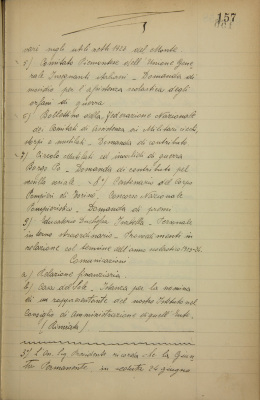 157
5) Comitato Piemontese dell'Unione Gene
rale Insegnanti Italiani - Domanda di
sussidio per l'assistenza scolastica degli
orfani di guerra
6) Bollettino della Federazione Nazionale
dei Comitati di Assistenza ai Militari ciechi,
storpi e mutilati - Domanda di contributo
7) Circolo mutilati ed invalidi di guerra
Borgo Po - Domanda di contributo pel
sociale - 8° Centenario del Corpo
Pompieri di Torino, Concorso Nazionale
Pompieristico - Domanda di premi
9) Educatorio Duchessa Isabella - Personale
interno straordinario - Provvedimenti in
relazione al termine dell'anno scolastico
Comunicazioni
a) Relazione finanziaria -
b) Casa del Sole - Istanza per la nomina
di un rappresentante del nostro Istituto nel
Consiglio di Amministrazione di quell'Ente.
(Rinviata)
Presidente ricorda che la Giun
ta Permanente, in seduta 26 giugno